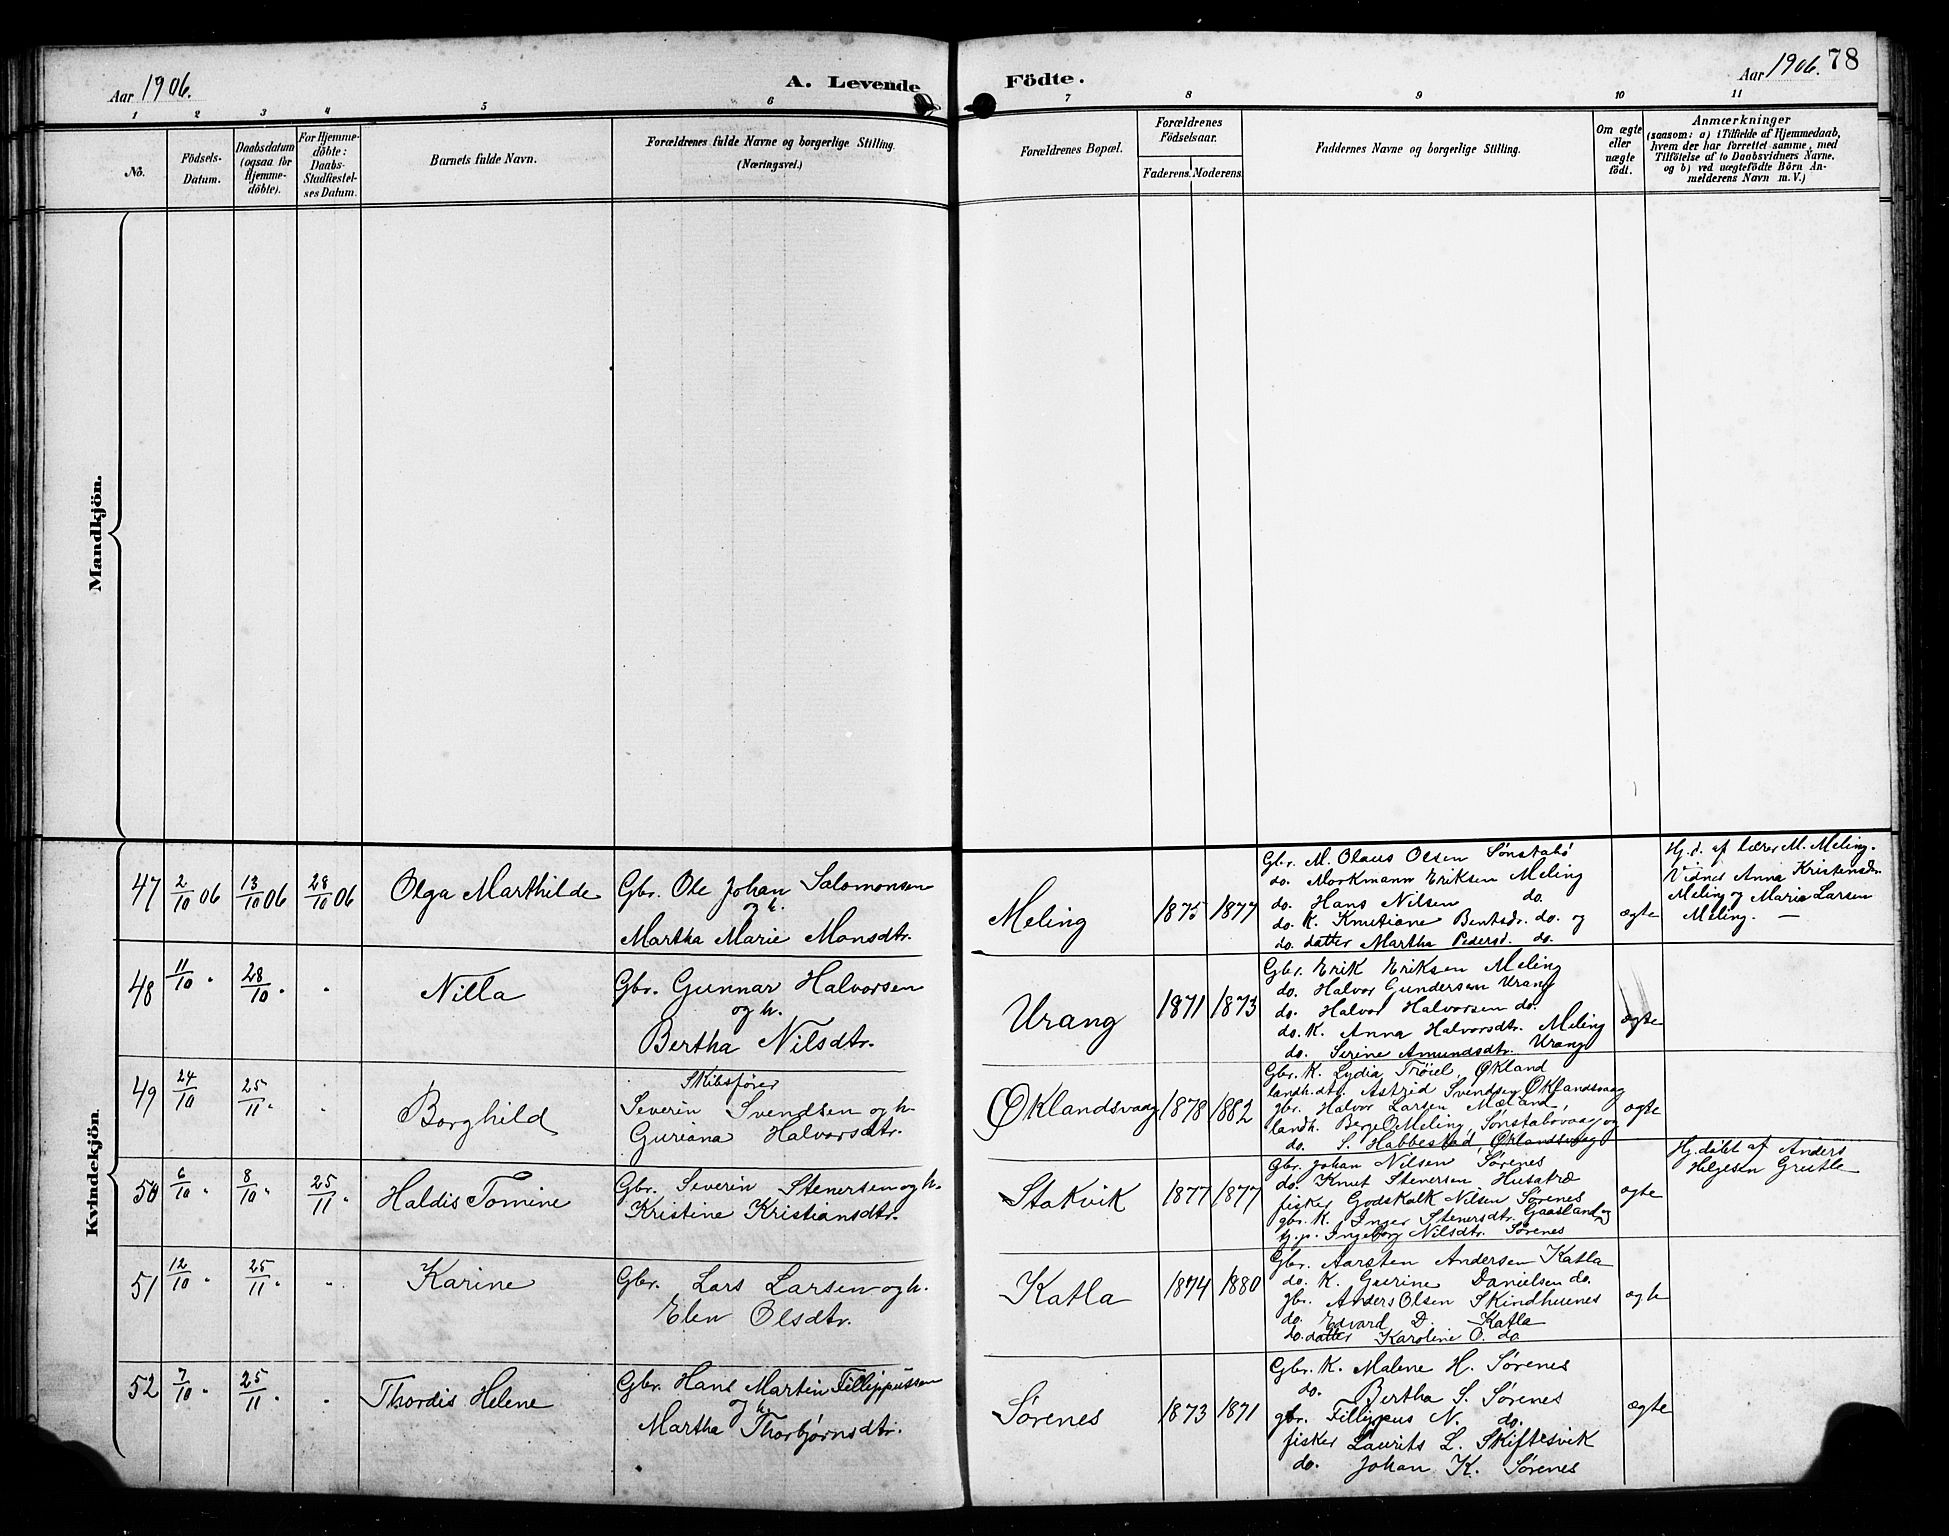 Aar 1906.
A. Levende
Födte.
Aar 1906.
78
1 2 3 4 5 6 7 8 9 10 11
No.
Födsels-
Datum.
Daabsdatum
(ogsaa for
Hjemme-
döbte).
For Hjemme-
döbte:
Daabs-
Stadfæstel-
ses Datum.
Barnets fulde Navn.
Forældrenes fulde Navne og borgerlige Stilling.
(Næringsvei.)
Forældrenes Bopæl.
Forældrenes
Födselsaar.
Faderens. Moderens.
Faddernes Navne og borgerlige Stilling.
Om ægte
eller
uægte
födt.
Anmærkninger
(saasom: a) i Tilfælde af Hjemmedaab,
hvem der har forrettet samme, med
Tilföielse af to Daabsvidners Navne,
og b) ved uægtefödte Börn An-
melderens Navn m. V.)
Mandkjön.
Kvindekjön.
47
2/10 06
13/10 06
28/10 06
Olga Marthilde
Gbr. Ole Johan Salomonsen
og h.
Martha Marie Monsdtr.
Meling
1875 1877
Gbr. M. Olaus Olsen Sønstabø
do. Morkmann Eriksen Meling
do. Hans Nilsen do.
do. K. Knutiane Bentsdr. do. og
do. datter Martha Pedersd. do.
ægte
Hj. d. af lærer M. Meling.
Vidnes Anna Kristensdr.
Meling og Marie Larsen
Meling. —
48
11/10 "
28/10 "
"
Nilla
Gbr. Gunnar Halvorsen
og h.
Bertha Nilsdtr.
Urang
1871 1873
Gbr. Erik Eriksen Meling
do. Halvor Gundersen Urang
do. Halvor Halvorsen do.
do. K. Anna Halvorsdtr. Meling
do. Serine Amundsdtr. Urang
ægte
49
24/10
25/11 "
"
Borghild
Skibsfører
Severin Svendsen og h.
Guriana Halvorsdtr.
Øklandsvaag
1878 1882
Gbr. K. Lydia Trøiel, Økland
landh. dtr. Astrid Svendsen Øklandsvaag
gbr. Halvor Larsen Mæland
landh. Berge O Meling, Sønstabøvaag og
do. S. Habbestad, Øklandsvaag
ægte
50
6/10 "
8/10 "
25/11 "
Haldis Tomine
Gbr. Severin Stenersen og h.
Kristine Kristiansdtr.
Stokvik
1877 1877
Gbr. Johan Nilsen Sørenes
do. Knut Stenersen Husatræ
fisker Godskalk Nilsen Sørenes
gbr. K. Inger Stenersdtr. Gaasland og
tj. p. Ingeborg Nilsdtr. Sørenes
ægte
Hj. døbt af Anders
Helgesen Grutle
51
12/10 "
25/11 "
"
Karine
Gbr. Lars Larsen og h.
Elen Olsdtr.
Katla
1874 1880
Gbr. Aarsten Andersen Katla
do. K. Gurine Danielsen do.
gbr. Anders Olsen Skindhuenes
do. Edvard D. Katla
do. datter Karoline O. do
ægte
52
7/10 "
25/11 "
"
Thordis Helene
Gbr. Hans Martin Fillippussen
og h.
Martha Thorbjørnsdtr.
Sørenes
1873 1871
Gbr. K. Malene H. Sørenes
do. Bertha S. Sørenes
gbr. Fillippus N. do.
fisker Laurits L. Skiftesvik
do. Johan K. Sørenes
ægte